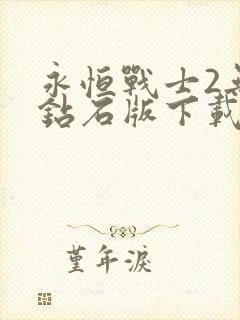 永恒戰士2無
鉆石版下載
堇年淚